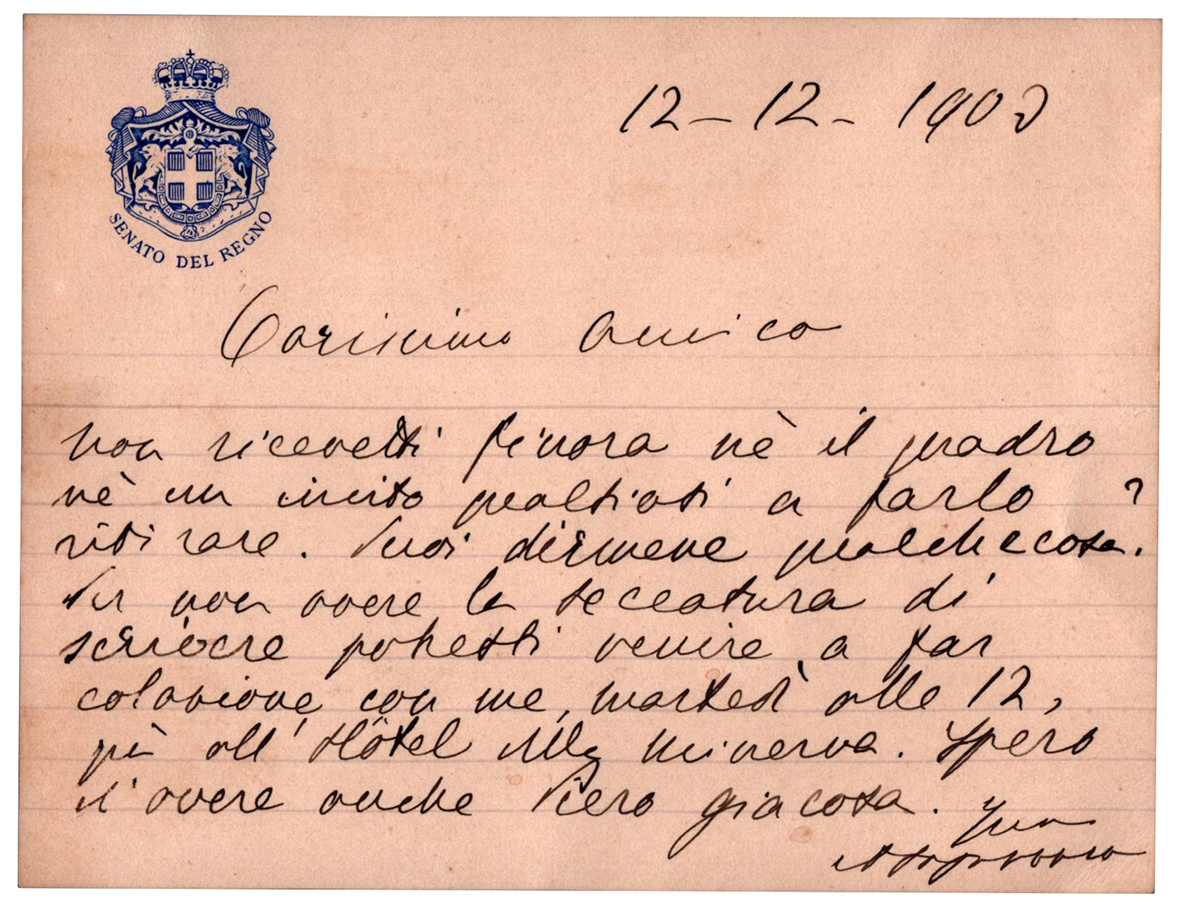 SENATO DEL REGNO
12-12-1903
Carissimo Amico
non ricevetti finora nè il quadro
nè un invito qualsiasi a farlo
ritirare. Puoi dirmene qualchecosa?
Per non avere la seccatura di
scrivere potresti venire a far
colazione con me, martedì alle 12,
quì all'Hôtel della Minerva. Spero
d'avere anche Piero Giacosa.
Tuo